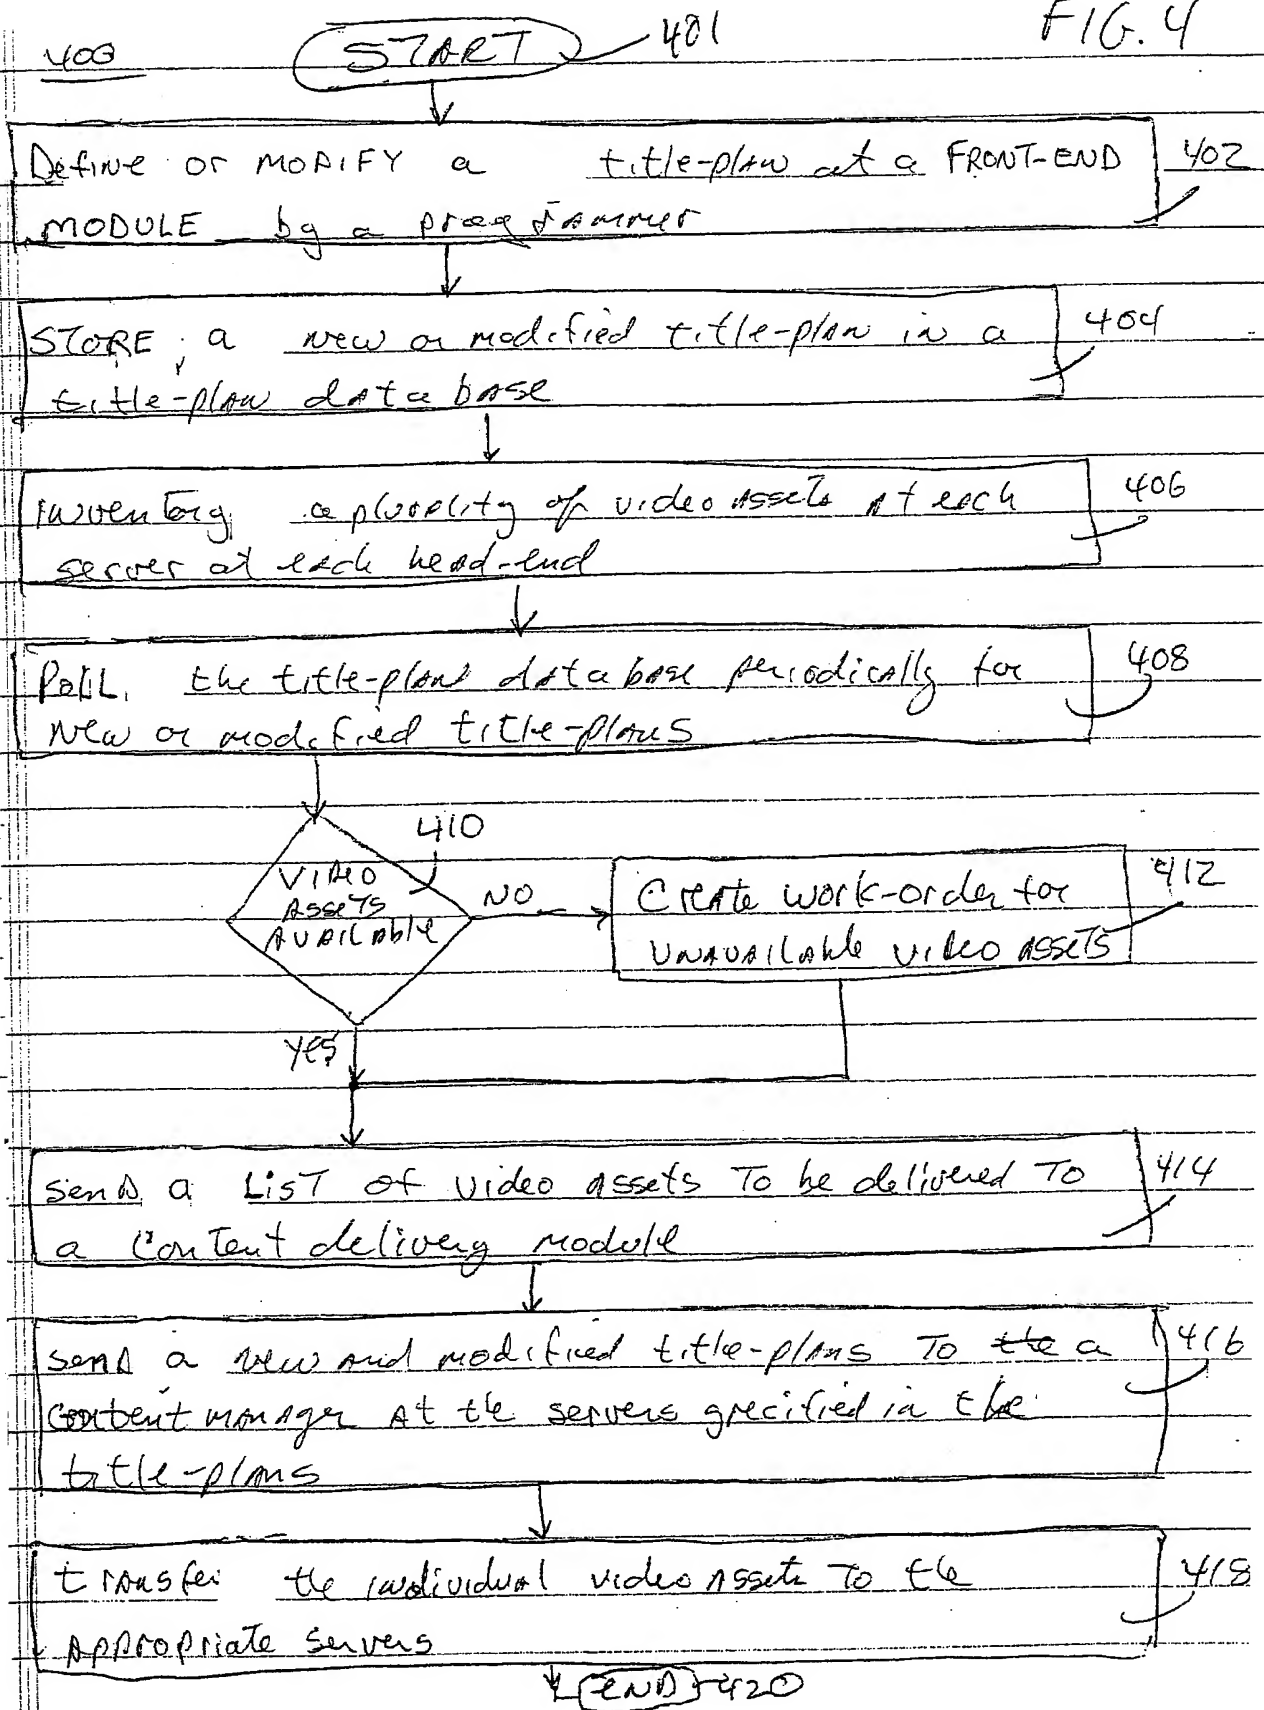 FIG. 4
400
START 401
Define or MODIFY a title-plan at a FRONT-END 402
MODULE by a programmer
STORE a new or modified title-plan in a 404
title-plan database
inventory a plurality of video assets at each 406
server at each head-end
Poll the title-plan data base periodically for 408
New or modified title-plans
410
VIDEO
ASSETS
AVAILABLE
NO
Create work-order for 412
UNAVAILABLE VIDEO ASSETS
YES
send a LIST OF video assets To be delivered To 414
a Content delivery module
send a new and modified title-plans To the a 416
content manager At the servers specified in the
title-plans
transfer the individual video Assets To the 418
Appropriate servers
END 420